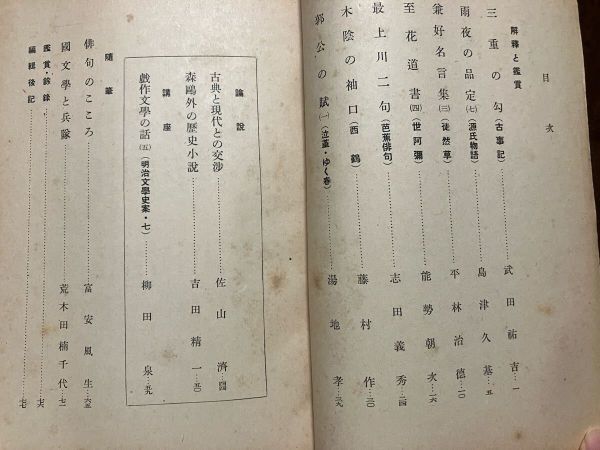 目次
解釋と鑑賞
三重の勾(古事記)……武田祐吉…一
雨夜の品定(七)(源氏物語)……島津久基…五
兼好名言集(三)(徒然草)……平林治德…一〇
至花道書(四)(世阿彌)……能勢朝次…一六
最上川二句(芭蕉俳句)……志田義秀…二四
木陰の袖口(西鶴)……藤村作…三〇
郭公の賦(一)(泣菫・ゆく春)……湯地孝…三九
論說
古典と現代との交渉……佐山濟…四四
森鷗外の歷史小說……吉田精一…五〇
講座
戲作文學の話(五)(明治文學史案・七)……柳田泉…五九
隨筆
俳句のこころ……富安風生…六五
國文學と兵隊……荒木田楠千代…七一
鑑賞・餘錄……七六
編輯後記……七七